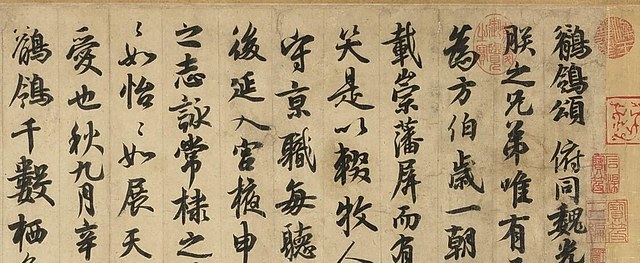 鶺鴒頌 俯同魏光
朕之兄弟唯有
為方伯歲一朝
載崇藩屏而有
笑是以輟牧人
守京職每聽
後延入宮掖申
之志詠常棣之
〻如怡〻如展天
愛也秋九月辛
鶺鴒千數栖